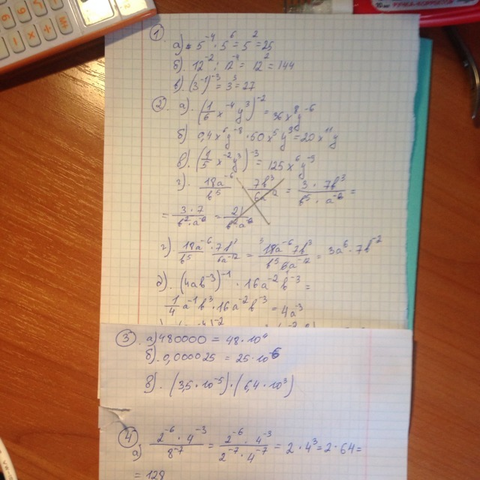 1
а) 5⁻⁴ · 5⁶ = 5² = 25
б) 12⁻² : 12⁻⁴ = 12² = 144
в) (3⁻¹)⁻³ = 3³ = 27
2 а) (1/6 x⁻⁴y³)⁻² = 36x⁸y⁻⁶
б) 0,4x⁶y⁻⁸ · 50x⁵y⁹ = 20x¹¹y
в) (1/5 x⁻²y³)⁻³ = 125x⁶y⁻³
г) 18a⁻⁶/b⁵ 7b³/6a⁻¹² = 3 · 7b³/b⁵ · a⁻⁶ =
= 3 · 7/b² · a⁻⁶ = 21/b²a⁻⁶
г) 18a⁻⁶/b⁵ · 7b³/6a⁻¹² = 18a⁻⁶7b³/b⁵6a⁻¹² = 3a⁶ · 7b⁻²
д) (4ab⁻³)⁻¹ · 16a⁻²b⁻³ =
1/4 a⁻¹b³ · 16a⁻²b⁻³ = 4a⁻³
3 а) 480000 = 48 · 10⁴
б) 0,000025 = 25 · 10⁻⁶
в) (3,5 · 10⁻⁵) · (6,4 · 10³)
4
а) 2⁻⁶ · 4⁻³/8⁻⁷ = 2⁻⁶ · 4⁻³/2⁻⁷ · 4⁻⁷ = 2 · 4³ = 2 · 64 =
= 128